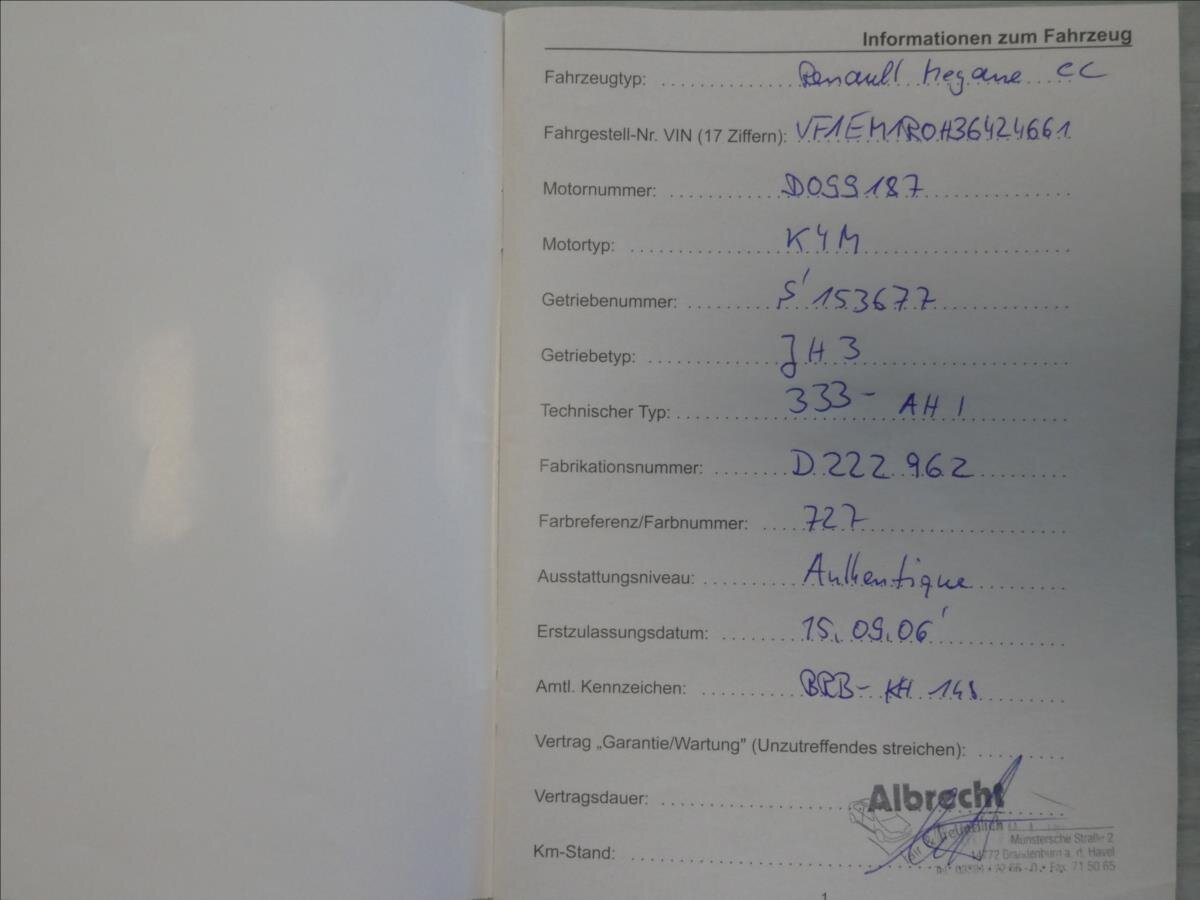 Informationen zum Fahrzeug
Fahrzeugtyp: Renault Megane CC
Fahrgestell-Nr. VIN (17 Ziffern): VF1EM1ROH36424661
Motornummer: D099187
Motortyp: K4M
Getriebenummer: S' 153677
Getriebetyp: JH3
Technischer Typ: 333- AH1
Fabrikationsnummer: D222962
Farbreferenz/Farbnummer: 727
Ausstattungsniveau: Authentique
Erstzulassungsdatum: 15.09.06
Amtl. Kennzeichen: BRB- KH
Vertrag „Garantie/Wartung" (Unzutreffendes streichen):
Vertragsdauer:
Albrecht
fair & freundlich
Münstersche Straße 2
Km-Stand:
14772 Brandenburg a. d. Havel
Fax 71 50 65
1